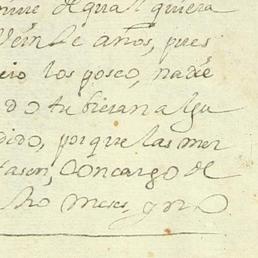 de qualquiera
Veinte años, pues
los poseo, nadie
do tubieran algu
dido, porque las mer
tasen, Concargo de
ocho meses, y no